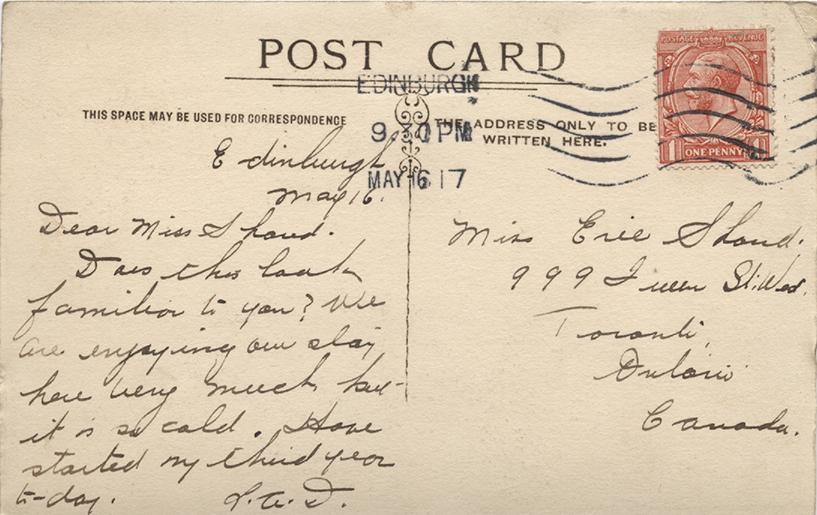 POST CARD
EDINBURGH
9.30 PM
MAY 16 17
THIS SPACE MAY BE USED FOR CORRESPONDENCE
THE ADDRESS ONLY TO BE
WRITTEN HERE.
POSTAGE REVENUE
1 ONE PENNY 1
Edinburgh,
May 16.
Dear Miss Shand.
Does this look
familiar to you? We
are enjoying our stay
here very much but
it is so cold. Have
started my third year
to-day. 
Miss Erie Shand.
999 Queen St. West.
Toronto,
Ontario
Canada.